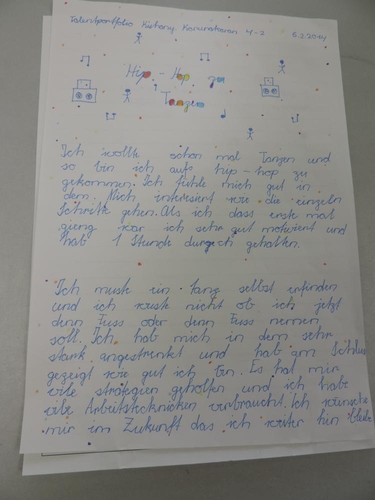 Talentportfolio Kistony Karunakaran 4-2 6.2.2014
Hip-Hop
Tanzen
Ich wollte schon mal Tanzen und
so bin ich aufs hip-hop zu
gekommen. Ich fühle mich gut in
dem. Mich interesiert wie die einzeln
Schritte gehen. Als ich dass erste mal
gieng war ich sehr gut motiviert und
hab 1 Stunde durch gehalten.
Ich muste ein tanz selbst erfinden
und ich wuste nicht ob ich jetzt
denn Fuss oder denn Fuss nemen
soll. Ich hab mich in dem sehr
stark angestrenkt und hab am Schluss
gezeigt wie gut ich bin. Es hat mir
vile strategien geholfen und ich habe
vile Arbeitstecknicken verbraucht. Ich wünsche
mir im Zukunft das ich weiter hin bleibe